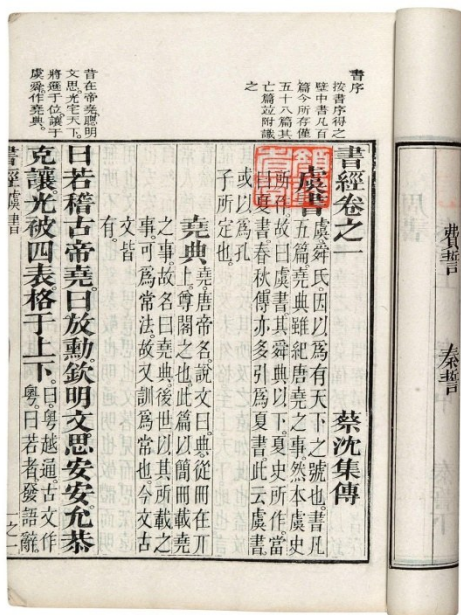 費誓
秦誓
書序
按書序得之
壁中書凡百
篇今所存僅
五十八篇其
亡篇竝附識
之
昔在帝堯聰明
文思光宅天下
將遜于位讓于
虞舜作堯典。
書經卷之一
蔡沈集傳
虞書 虞舜氏。因以爲有天下之號也。書凡
五篇。堯典雖紀唐堯之事。然本虞史
所作。故曰虞書。其舜典以下。夏史所作。當
曰夏書。春秋傳亦多引爲夏書。此云虞書。
或以爲孔
子所定也。
堯典 堯唐帝名。說文曰。典從冊在丌
上。尊閣之也。此篇以簡冊載堯
之事。故名曰堯典。後世以其所載之
事。可爲常法。故又訓爲常也。今文古
文皆
有。
曰若稽古帝堯。曰放勳。欽明文思安安。允恭
克讓。光被四表。格于上下。曰粤越通。古文作
粤。曰若者。發語辭。
書經 虞書